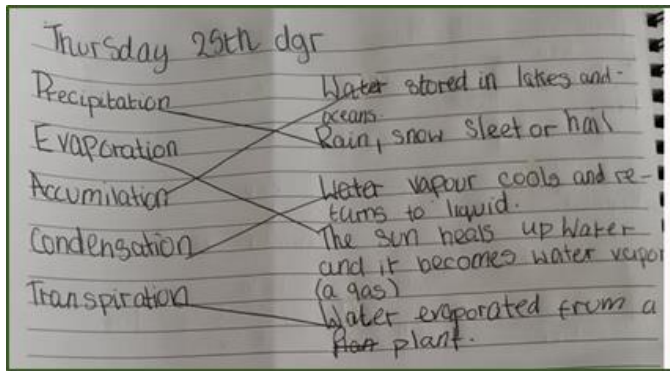 Thursday 25th dgr
Precipitation
Evaporation
Accumilation
Condensation
Transpiration
Water stored in lakes and-
oceans.
Rain, snow sleet or hail
Water vapour cools and re-
turns to liquid.
The sun heats up Water
and it becomes water vapor
(a gas)
Water evaporated from a
plant.